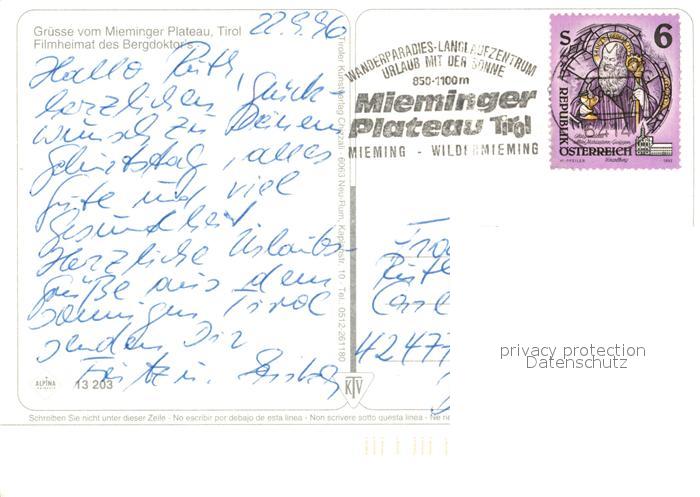 Grüsse vom Mieminger Plateau, Tirol
Filmheimat des Bergdoktor's
22.9.96
Hallo Ruth,
herzlichen Glück-
wunsch zu Deinem
Geburtstag, alles
Gute und viel
Gesundheit
Herzliche Urlaubs-
grüße aus dem
sonnigen Tirol
senden Dir
ALPINA
13 203
Tiroler Kunstverlag Chizzali · 6063 Neu-Rum, Kaplanstr. 10 · Tel. 0512-261180
KTV
WANDERPARADIES-LANGLAUFZENTRUM
URLAUB MIT DER SONNE
850-1100m
Mieminger
Plateau Tirol
MIEMING - WILDERMIEMING
S 6
REPUBLIK
ÖSTERREICH
6414
Frau
Ruth
42477
Schreiben Sie nicht unter dieser Zeile - No escribir por debajo de esta linea - Non scrivere sotto questa linea -
privacy protection
Datenschutz